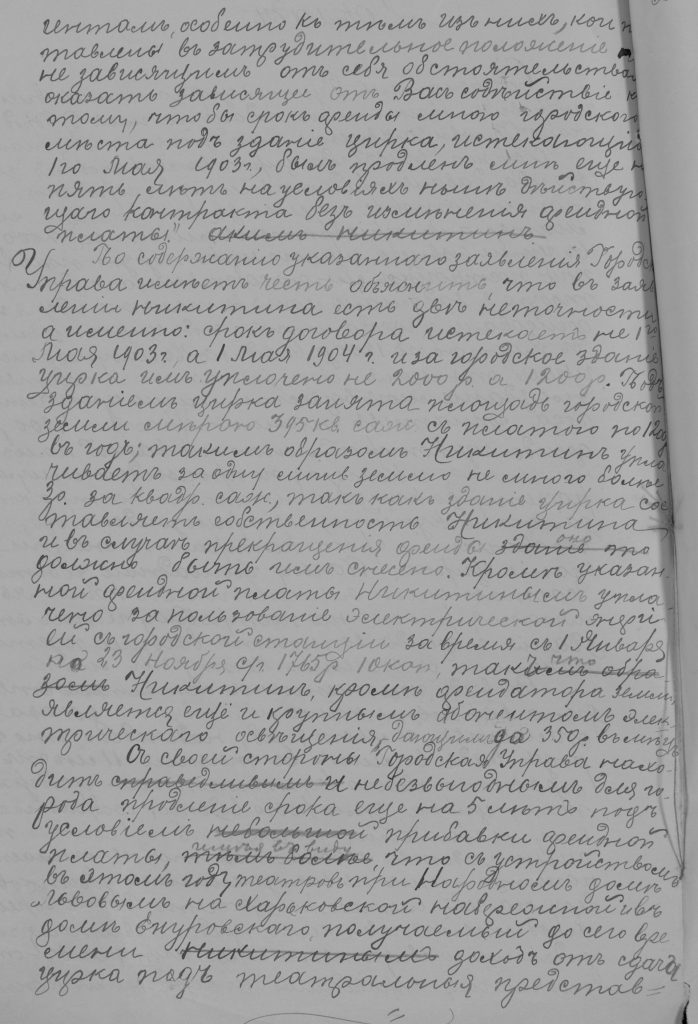 гентамъ, особенно къ тѣмъ изъ нихъ, кои п
тавлены въ затруднительное положеніе
не зависящимъ отъ себя обстоятельства
оказать зависящее отъ Васъ содѣйствіе к
тому, чтобы срокъ аренды мною городского
мѣста подъ зданіе цирка, истекающій
1го Мая 1903 г., былъ продленъ мнѣ еще н
пять лѣтъ на условіяхъ нынѣ дѣйствую
щаго контракта безъ измѣненія арендной
платы." Акимъ Никитинъ
По содержанію указаннаго заявленія Городс
Управа имѣетъ честь объяснить, что въ заяв
леніи Никитина есть двѣ неточности
а именно: срокъ договора истекаетъ не 1го
Мая 1903 г, а 1 Мая 1904 г. и за городское зданіе
цирка имъ уплочено не 2000 р. а 1200 р. Подъ
зданіемъ цирка занята площадь городской
земли мѣрою 395 кв. саж съ платою по 1200
въ годъ; такимъ образомъ Никитинъ упла
чиваетъ за одну лишь землю не много болѣе
3р. за квадр. саж, такъ какъ зданіе цирка сос
тавляетъ собственность Никитина
и въ случаѣ прекращенія аренды зданіе это оно
должно быть имъ снесено. Кромѣ указан
ной арендной платы Никитинымъ упла
чено за пользованіе электрической энергі
ей съ городской станціи за время съ 1 Января
на 23 Ноября ср 1765 р 10 коп, такимъ обра что
зомъ Никитинъ, кромѣ арендатора земли
является еще и крупнымъ абонентомъ элек
трическаго освѣщенія, дающимъ до 350 р. въ мѣсяцъ
Съ своей стороны Городская Управа нахо
дитъ справедливымъ и небезвыгоднымъ для го
рода продленіе срока еще на 5 лѣтъ подъ
условіемъ небольшой прибавки арендной
платы, тѣмъ болѣе имѣя въ виду, что съ устройствомъ
въ этомъ году театровъ при Народномъ домѣ
Львовымъ на Харьковской набережной и въ
домѣ получаемый до сего вре
мени Никитинымъ доходъ отъ сдачи
цирка подъ театральныя представ=